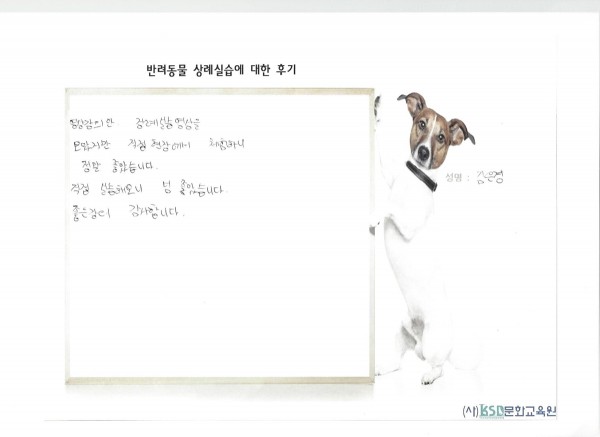 반려동물 상례실습에 대한 후기
장례실습 영상을
직접 현장에서 체험하니
정말 좋았습니다.
직접 실습해보니 넘 좋았습니다.
좋은강의 감사합니다.
성명 : 김은경
(사)KSD문화교육원